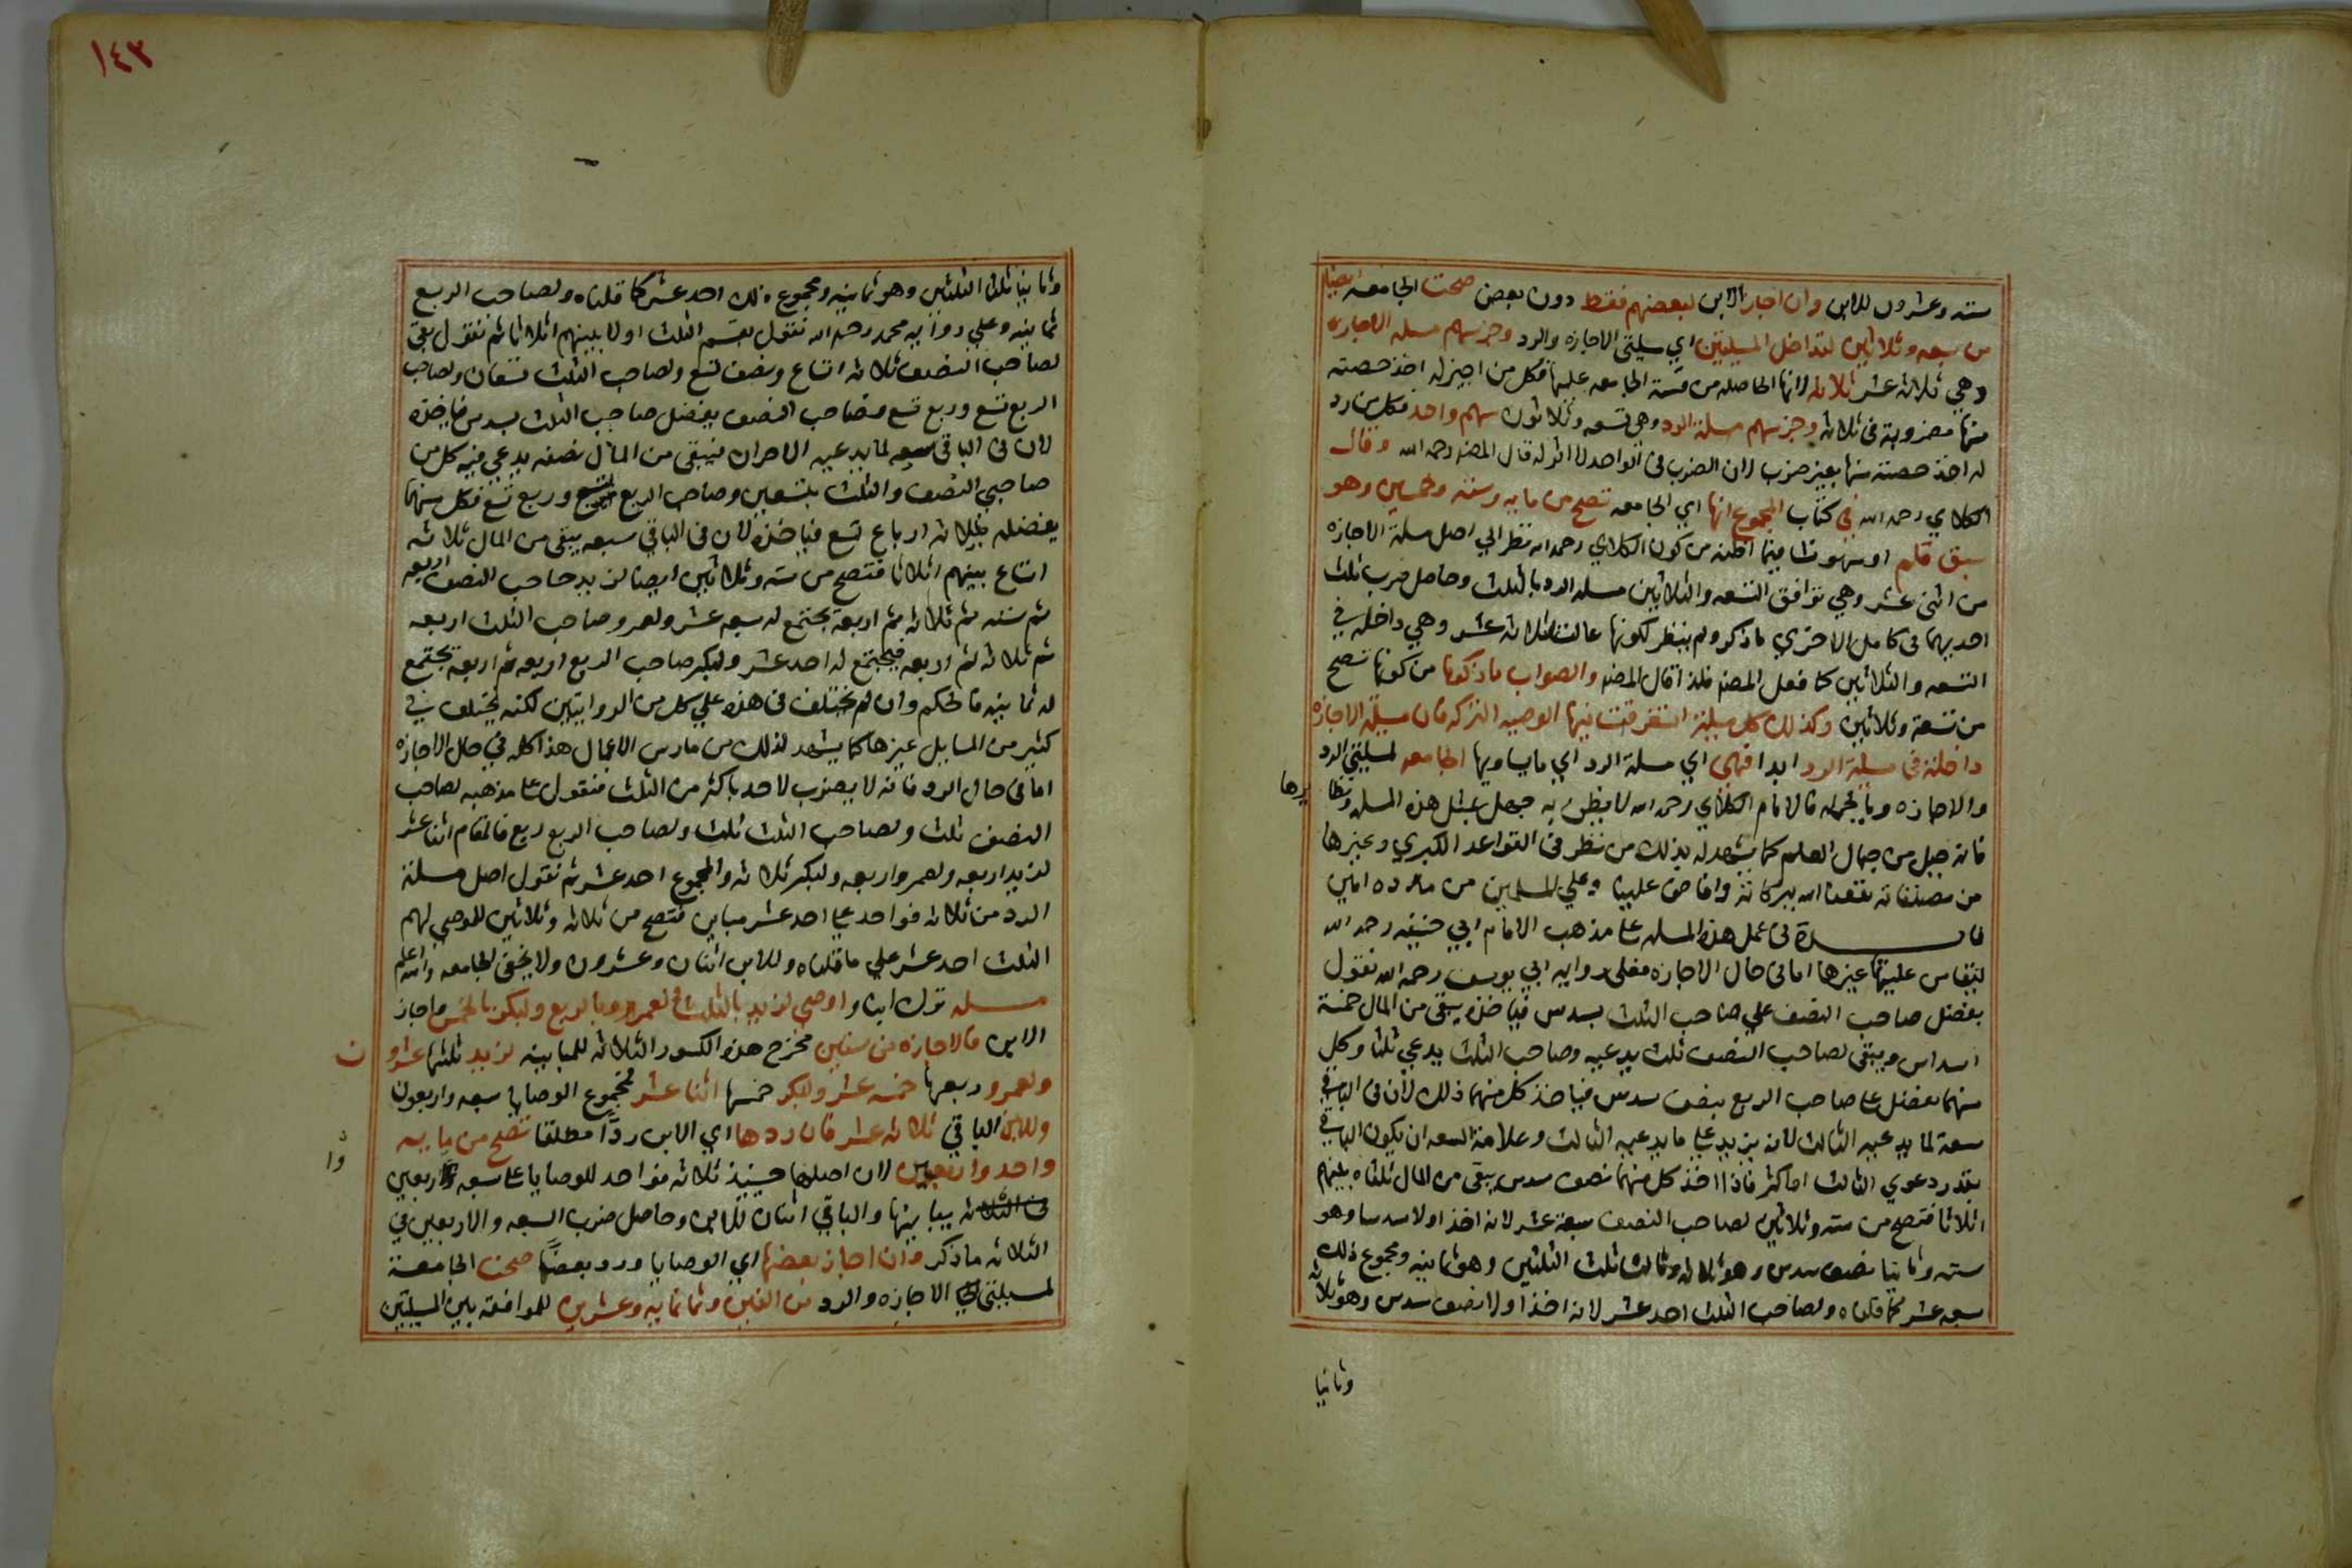 ستة وعشرون للابن وان اجاز الابن لبعضهم فقط دون بعض صحت الجامعه ايضا
من تسعه وثلاثين لتداخل المسيلتين اي مسيلتي الاجازه والرد وجز سهم مسلة الاجازه
وهي ثلاثة عشر ثلاثه لانها الحاصله من قسمة الجامعه عليها فكل من اجيز له اخذ حصته
منها مضروبة في ثلاثة وجز سهم مسلة الرد وهي تسعه وثلاثون سهم واحد فكل من رد
له اخذ حصته منها بغير ضرب لان الضرب في الواحد لا اثر له قال المصنف رحمه الله وقال
الكلاي رحمه الله في كتاب المجموع انها اي الجامعه تصح من مايه وستة وخمسين وهو
سبق قلم او سهو نشا فيما اظنه من كون الكلاي رحمه الله نظر الي اصل مسلة الاجازه
من اثنى عشر وهي توافق التسعه والثلاثين مسلة الرد بالثلث وحاصل ضرب ثلث
احديهما في كامل الاخري ما ذكر ولم ينظر لكونها عالت لثلاثة عشر وهي داخلة في
التسعه والثلاثين كما فعل المصنف فلذا قال المصنف والصواب ما ذكرنا من كونها تصح
من تسعة وثلاثين وكذلك كل مسيلة استغرقت فيها الوصيه التركه فان مسيلة الاجازه
داخلة في مسيلة الرد ابدا فهي اي مسلة الرد اي ما يساويها الجامعه لمسيلتي الرد
والاجازه وبالجمله فالامام الكلاي رحمه الله لا يظن به جهل بمثل هذه المسله ونظا يرها
فانه جبل من جبال العلم كما يشهد له بذلك من نظر في القواعد الكبري وغيرها
من مصنفاته نفعنا الله ببركاته وافاض علينا وعلي المسلمين من مدده امين
فايدة في عمل هذه المسله علي مذهب الامام ابي حنيفه رحمه الله
لتقاس عليها غيرها اما في حال الاجازه فعلى رواية ابي يوسف رحمه الله نقول
يفضل صاحب النصف علي صاحب الثلث بسدس فياخذه يبقى من المال خمسة
اسداس ويبقى لصاحب النصف ثلث يدعيه وصاحب الثلث يدعي ثلثا وكل
منهما يفضل علي صاحب الربع بنصف سدس فياخذ كل منهما ذلك لان في الباقي
سعة لما يدعيه الثالث لانه يزيد علي ما يدعيه الثالث وعلامة السعه ان يكون الباقي
بقدر دعوي الثالث او اكثر فاذا اخذ كل منهما نصف سدس يبقى من المال ثلثاه بينهم
اثلاثا فتصح من ستة وثلاثين لصاحب النصف سبعة عشر لانه اخذ اولا سدسا وهو
ستة وثانيا نصف سدس وهو ثلاثة وثالثا ثلث الثلثين وهو ثمانيه ومجموع ذلك
سبعه عشر كما قلناه ولصاحب الثلث احد عشر لانه اخذ اولا نصف سدس وهو ثلاثة
وثانيا
١٤٣
وثانيا ثلث الثلثين وهو ثمانيه ومجموع ذلك احد عشر كما قلناه ولصاحب الربع
ثمانيه وعلي رواية محمد رحمه الله نقول يقسم الثلث اولا بينهم اثلاثا ثم نقول بقي
لصاحب النصف ثلاثة اتساع ونصف تسع ولصاحب الثلث تسعان ولصاحب
الربع تسع وربع تسع فصاحب النصف يفضل صاحب الثلث بسدس فياخذه
لان في الباقي سعه لما يدعيه الاخران فيبقى من المال نصفه يدعي فيه كل من
صاحبي النصف والثلث بتسعين وصاحب الربع بتسع وربع تسع فكل منهما
يفضله بثلاثة ارباع تسع فياخذه لان في الباقي سعه يبقى من المال ثلاثة
اتساع بينهم اثلاثا فتصح من ستة وثلاثين ايضا لزيد صاحب النصف اربعه
ثم ستة ثم ثلاثة ثم اربعة يجتمع له سبعه عشر ولعمرو صاحب الثلث اربعه
ثم ثلاثة ثم اربعه فيجتمع له احد عشر ولبكر صاحب الربع اربعه ثم اربعة يجتمع
له ثمانيه فالحكم وان لم يختلف في هذه علي كل من الروايتين لكنه يختلف في
كثير من المسايل غيرها كما يشهد لذلك من مارس الاعمال هذا كله في حال الاجازه
اما في حال الرد فانه لا يضرب لاحد باكثر من الثلث فنقول علي مذهبه لصاحب
النصف ثلث ولصاحب الثلث ثلث ولصاحب الربع ربع فالمقام اثنا عشر
لزيد اربعه ولعمرو اربعه ولبكر ثلاثة والمجموع احد عشر ثم نقول اصل مسلة
الرد من ثلاثة فواحد علي احد عشر مباين فتصح من ثلاثة وثلاثين للموصي لهم
الثلث احد عشر علي ما قلناه وللابن اثنان وعشرون ولا يخفى الجامعه والله اعلم
مسله ترك ابنا واوصي لزيد بالثلث ولعمرو بالربع ولبكر بالخمس واجاز
الابن فالاجازه من ستين مخرج هذه الكسور الثلاثة للمباينه لزيد ثلثها عشرو ن
ولعمرو ربعها خمسه عشر ولبكر خمسها اثنا عشر فمجموع الوصايا سبعه واربعون
وللابن الباقي ثلاثة عشر فان ردها اي الابن ردًا مطلقا تصح من مايه
واحد واربعين لان اصلها حينيذ ثلاثة فواحد للوصايا علي سبعه واربعين
من الثلاثة يباينها والباقي اثنان للابن وحاصل ضرب السبعه والاربعين في
الثلاثة ما ذكر وان اجاز بعضها اي الوصايا ورد بعضًا صحت الجامعة
لمسيلتي الاجازه والرد من الفين وثمانمايه وعشرين للموافقه بين المسيلتين